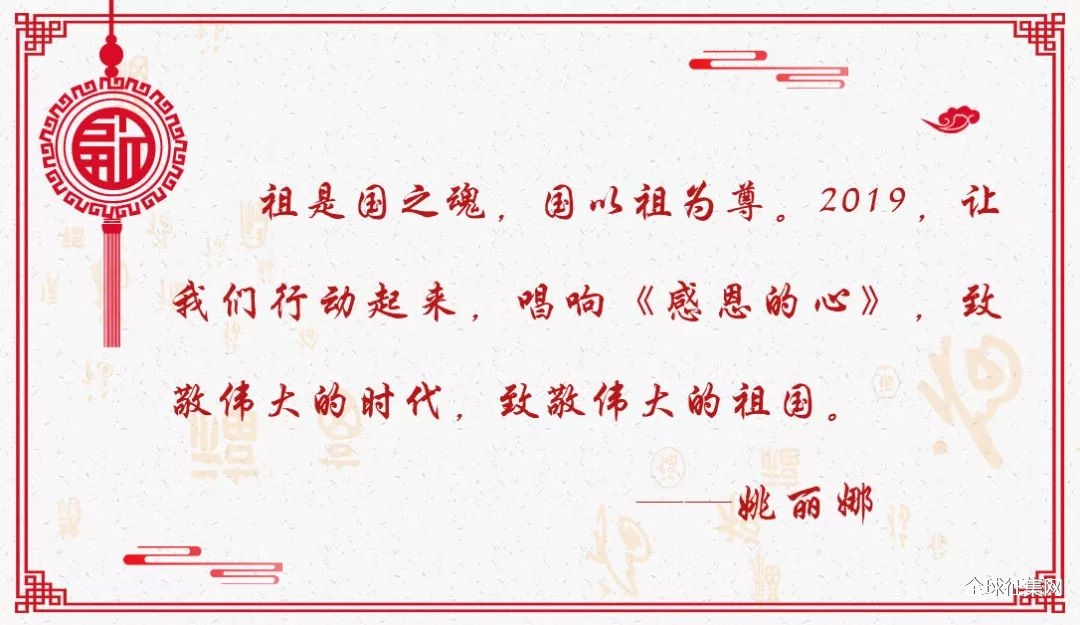 祖是国之魂，国以祖为尊。2019，让
我们行动起来，唱响《感恩的心》，致
敬伟大的时代，致敬伟大的祖国。
——姚丽娜
全球征集网